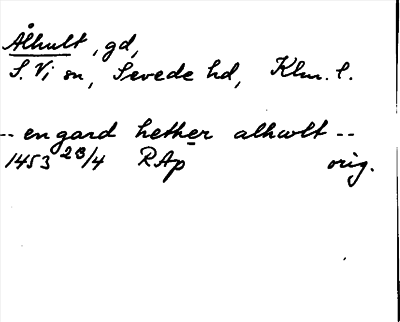 Ålhult, gd,
S. Vi sn, Sevede hd, Klm. l.
-- en gard hether alhwlt --
1453 28/4 RAp orig.